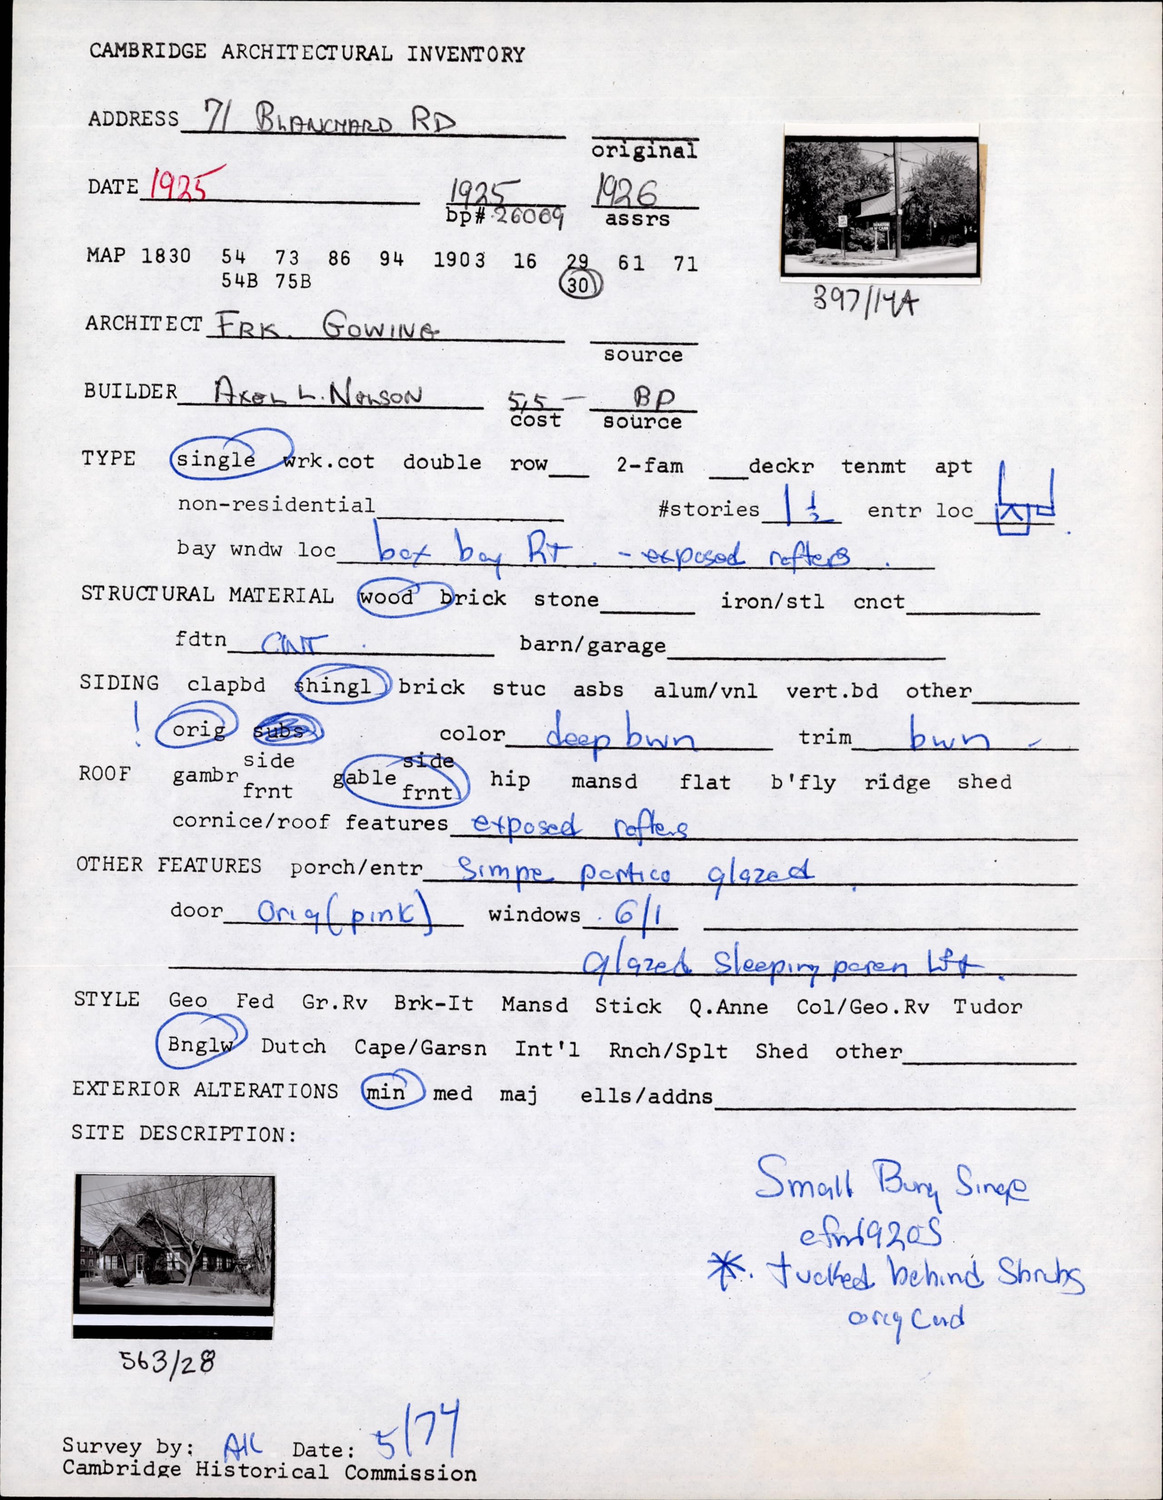 CAMBRIDGE ARCHITECTURAL INVENTORY
ADDRESS 71 BLANCHARD RD
original
DATE 1925 1925 1926
bp# 26069 assrs
MAP 1830 54 73 86 94 1903 16 29 61 71
54B 75B 30
397/14A
ARCHITECT FRK. GOWING
source
BUILDER AXEL L. NELSON 5,5 — BP
cost source
TYPE single wrk.cot double row 2-fam deckr tenmt apt
non-residential #stories 1 1/2 entr loc
bay wndw loc box bay RT. - exposed rafters
STRUCTURAL MATERIAL wood brick stone iron/stl cnct
fdtn CNT barn/garage
SIDING clapbd shingl brick stuc asbs alum/vnl vert.bd other
! orig subs color deep bwn trim bwn
ROOF gambr side frnt gable side frnt hip mansd flat b'fly ridge shed
cornice/roof features exposed rafters
OTHER FEATURES porch/entr Simpe portico glazed
door Orig (pink) windows 6/1
glazed Sleeping poren Lft.
STYLE Geo Fed Gr.Rv Brk-It Mansd Stick Q.Anne Col/Geo.Rv Tudor
Bnglw Dutch Cape/Garsn Int'l Rnch/Splt Shed other
EXTERIOR ALTERATIONS min med maj ells/addns
SITE DESCRIPTION:
Small Bung Singe
1920s
* tucked behind Shrubs
orig Cond
563/28
Survey by: AK Date: 5/74
Cambridge Historical Commission